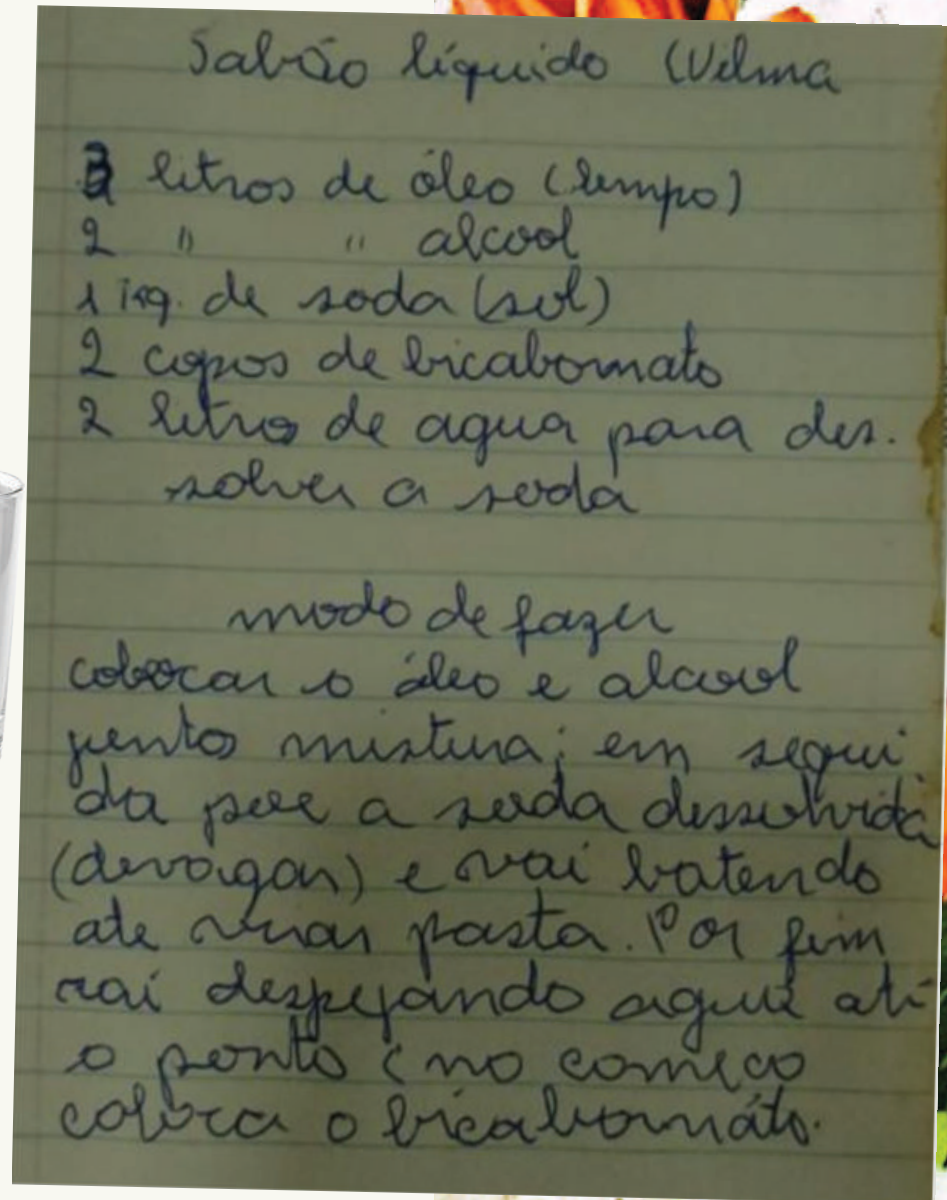 Sabão líquido (Vilma
3 litros de óleo (limpo)
2 " " alcool
1 kg. de soda (sol)
2 copos de bicabornato
2 litros de agua para des.
solver a soda
modo de fazer
colocar o óleo e alcool
juntos mistura; em segui
da poe a soda dessolvida
(devagar) e vai batendo
ate virar pasta. Por fim
vai despejando agua até
o ponto (no começo
coloca o bicabornáto.